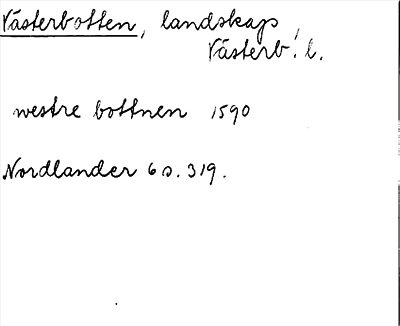 Västerbotten, landskap,
Västerb. l.
westre bottnen 1590
Nordlander 6 s. 319.